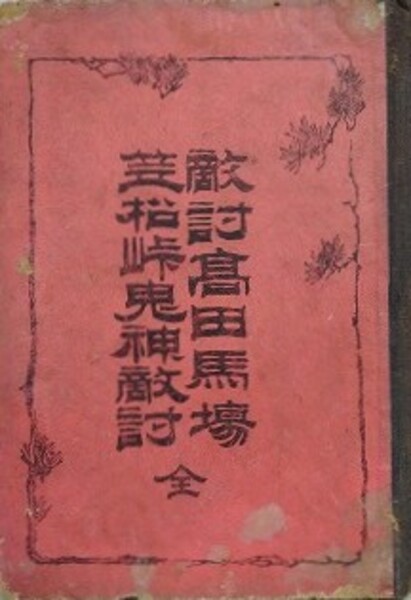 敵討高田馬場
笠松峠鬼神敵討
全